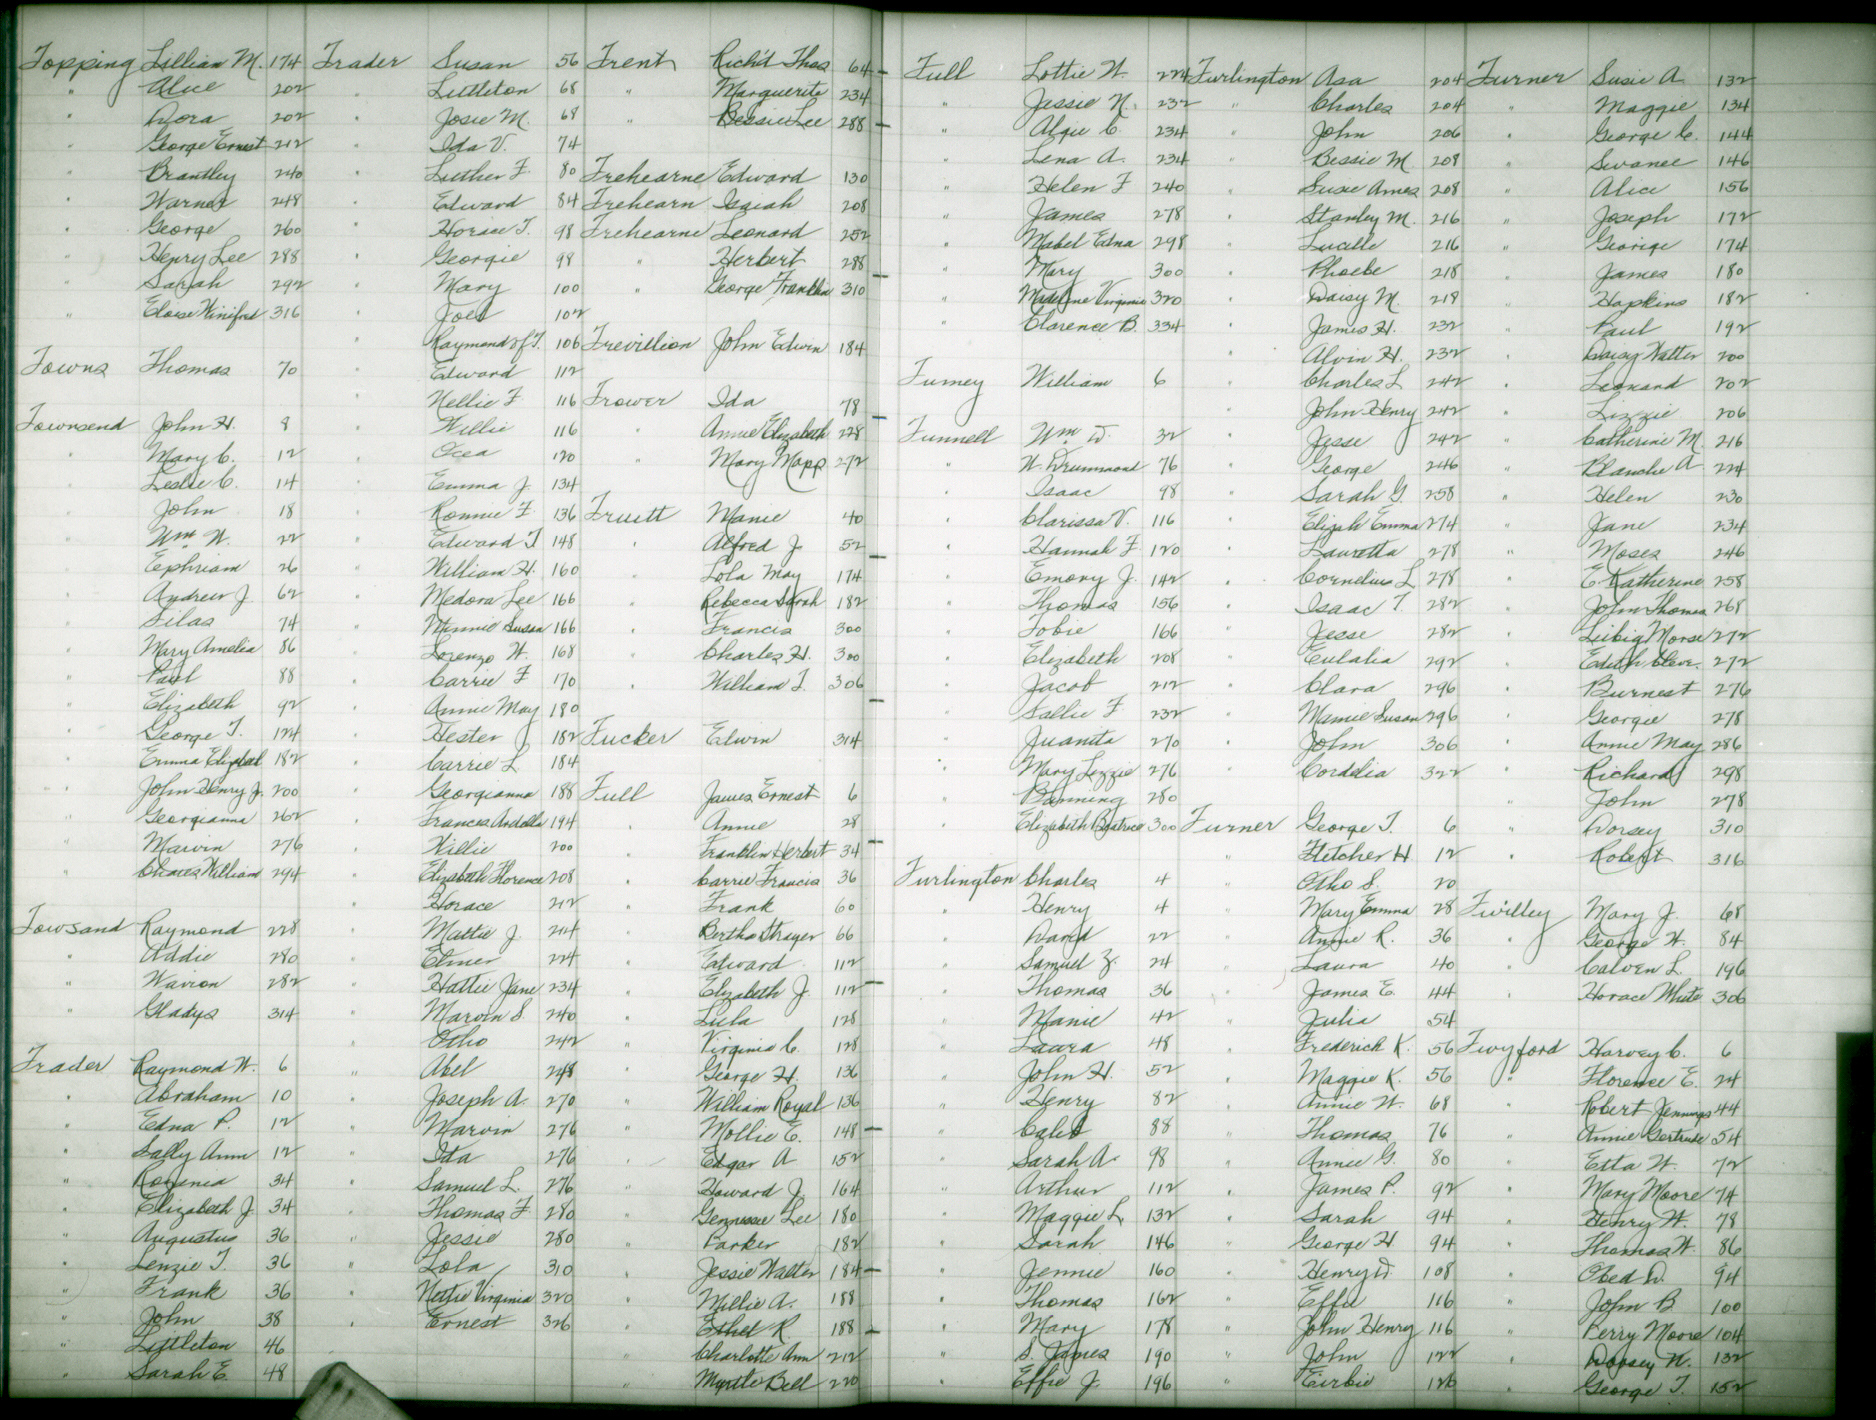 Topping Lillian M. 174
" Alice 202
" Dora 202
" George Ernest 212
" Brantley 240
" Warner 248
" George 260
" Henry Lee 288
" Sarah 292
" Eloise Winifred 316
Towns Thomas 70
Townsend John H. 8
" Mary C. 12
" Leslie C. 14
" John 18
" Wm W. 22
" Ephriam 26
" Andrew J. 62
" Silas 74
" Mary Amelia 86
" Paul 88
" Elizabeth 92
" George T. 124
" Emma Elizabeth 182
" John Henry J. 200
" Georgianna 262
" Marvin 276
" Charles William 294
Towsand Raymond 228
" Addie 280
" Warion 282
" Gladys 314
Trader Raymond W. 6
" Abraham 10
" Edna P. 12
" Sally Ann 12
" Roxenia 34
" Elizabeth J 34
" Augustus 36
" Lenzie T. 36
" Frank 36
" John 38
" Littleton 46
" Sarah E. 48
Trader Susan 56
" Littleton 68
" Josie M. 68
" Ida V. 74
" Luther F. 80
" Edward 84
" Horace T. 98
" Georgie 98
" Mary 100
" Joel 102
" Raymond of T. 106
" Edward 112
" Nellie F 116
" Willie 116
" Ocea 120
" Emma J. 134
" Ronnie F 136
" Edward T 148
" William H. 160
" Medora Lee 166
" Minnie Susan 166
" Lorenzo W. 168
" Carrie F 170
" Annie May 180
" Hester J 182
" Carrie L 184
" Georgianna 188
" Frances Ardella 194
" Willie 200
" Elizabeth Florence 208
" Horace 212
" Mattie J. 214
" Elmer 224
" Hattie Jane 234
" Marvin S. 240
" Otho 242
" Abel 248
" Joseph A. 270
" Marvin 276
" Ida 276
" Samuel L. 276
" Thomas F 280
" Jessie 280
" Lola 310
" Nettie Virginia 320
" Ernest 326
Trent Rich'd Thos 64
" Marguerite 234
" Bessie Lee 288
Trehearne Edward 130
Trehearn Isaiah 208
Trehearne Leonard 252
" Herbert 288
" George Franklin 310
Trevillion John Edwin 184
Trower Ida 78
" Annie Elizabeth 228
" Mary Mapp 272
Truitt Manie 40
" Alfred J. 52
" Lola May 174
" Rebecca Sarah 182
" Francis 300
" Charles H. 300
" William T. 306
Tucker Edwin 314
Tull James Ernest 6
" Annie 28
" Franklin Herbert 34
" Carrie Francis 36
" Frank 60
" Bertha Thayer 66
" Edward 112
" Elizabeth J. 112
" Lula 128
" Virginia C. 128
" George H. 136
" William Royal 136
" Mollie E. 148
" Edgar A 152
" Howard J. 164
" Gennessie Lee 180
" Parker 182
" Jessie Walter 184
" Millie A. 188
" Ethel R. 188
" Charlotte Ann 212
" Myrtle Bell 220
Tull Lottie W. 224
" Jessie N. 232
" Algie C. 234
" Lena A. 234
" Helen F 240
" James 278
" Mabel Edna 298
" Mary 300
" Madeline Virginia 320
" Clarence B. 334
Tumey William 6
Tunnell Wm D. 32
" W. Drummond 76
" Isaac 98
" Clarissa V. 116
" Hannah F 120
" Emory J. 142
" Thomas 156
" Tobie 166
" Elizabeth 208
" Jacob 212
" Sallie F 232
" Juanita 270
" Mary Lizzie 276
" Banning 280
" Elizabeth Beatrice 300
Turlington Charles 4
" Henry 4
" David 22
" Samuel Z. 24
" Thomas 36
" Manie 42
" Laura 48
" John H. 52
" Henry 82
" Caleb 88
" Sarah A. 98
" Arthur 112
" Maggie L 132
" Sarah 146
" Jennie 160
" Thomas 162
" Mary 178
" S. James 190
" Effie J. 196
Turlington Asa 204
" Charles 204
" John 206
" Bessie M 208
" Susie Ames 208
" Stanley M. 216
" Lucille 216
" Phoebe 218
" Daisy M. 218
" James H. 232
" Alvin H. 232
" Charles L 242
" John Henry 242
" Jesse 242
" George 246
" Sarah G. 258
" Elizah Emma 274
" Lauretta 278
" Cornelius L 278
" Isaac T. 282
" Jesse 282
" Eulalia 292
" Clara 296
" Mamie Susan 296
" John 306
" Cordelia 322
Turner George T. 6
" Fletcher H 12
" Otho S. 20
" Mary Emma 28
" Annie R. 36
" Laura 40
" James E. 44
" Julia 54
" Frederick K. 56
" Maggie K. 56
" Annie W. 68
" Thomas 76
" Annie G. 80
" James P. 92
" Sarah 94
" George H 94
" Henry D. 108
" Effie 116
" John Henry 116
" John 122
" Eirbie 126
Turner Susie A. 132
" Maggie 134
" George C. 144
" Swanee 146
" Alice 156
" Joseph 172
" George 174
" James 180
" Hopkins 182
" Paul 192
" Daisy Walter 200
" Leonard 202
" Lizzie 206
" Catherine M. 216
" Blanche A 224
" Helen 230
" Jane 234
" Moses 246
" E Katherine 258
" John Thomas 268
" Liebig Morse 272
" Edith Cleve. 272
" Burnest 276
" Georgie 278
" Annie May 286
" Richard 298
" John 278
" Dorsey 310
" Robert 316
Twilley Mary J. 68
" George W. 84
" Calven L. 196
" Horace White 306
Twyford Harvey C. 6
" Florence E. 24
" Robert Jennings 44
" Annie Gertrude 54
" Etta W. 72
" Mary Moore 74
" Henry W. 78
" Thomas W. 86
" Obed D. 94
" John B 100
" Perry Moore 104
" Dorsey N. 132
" George T. 152